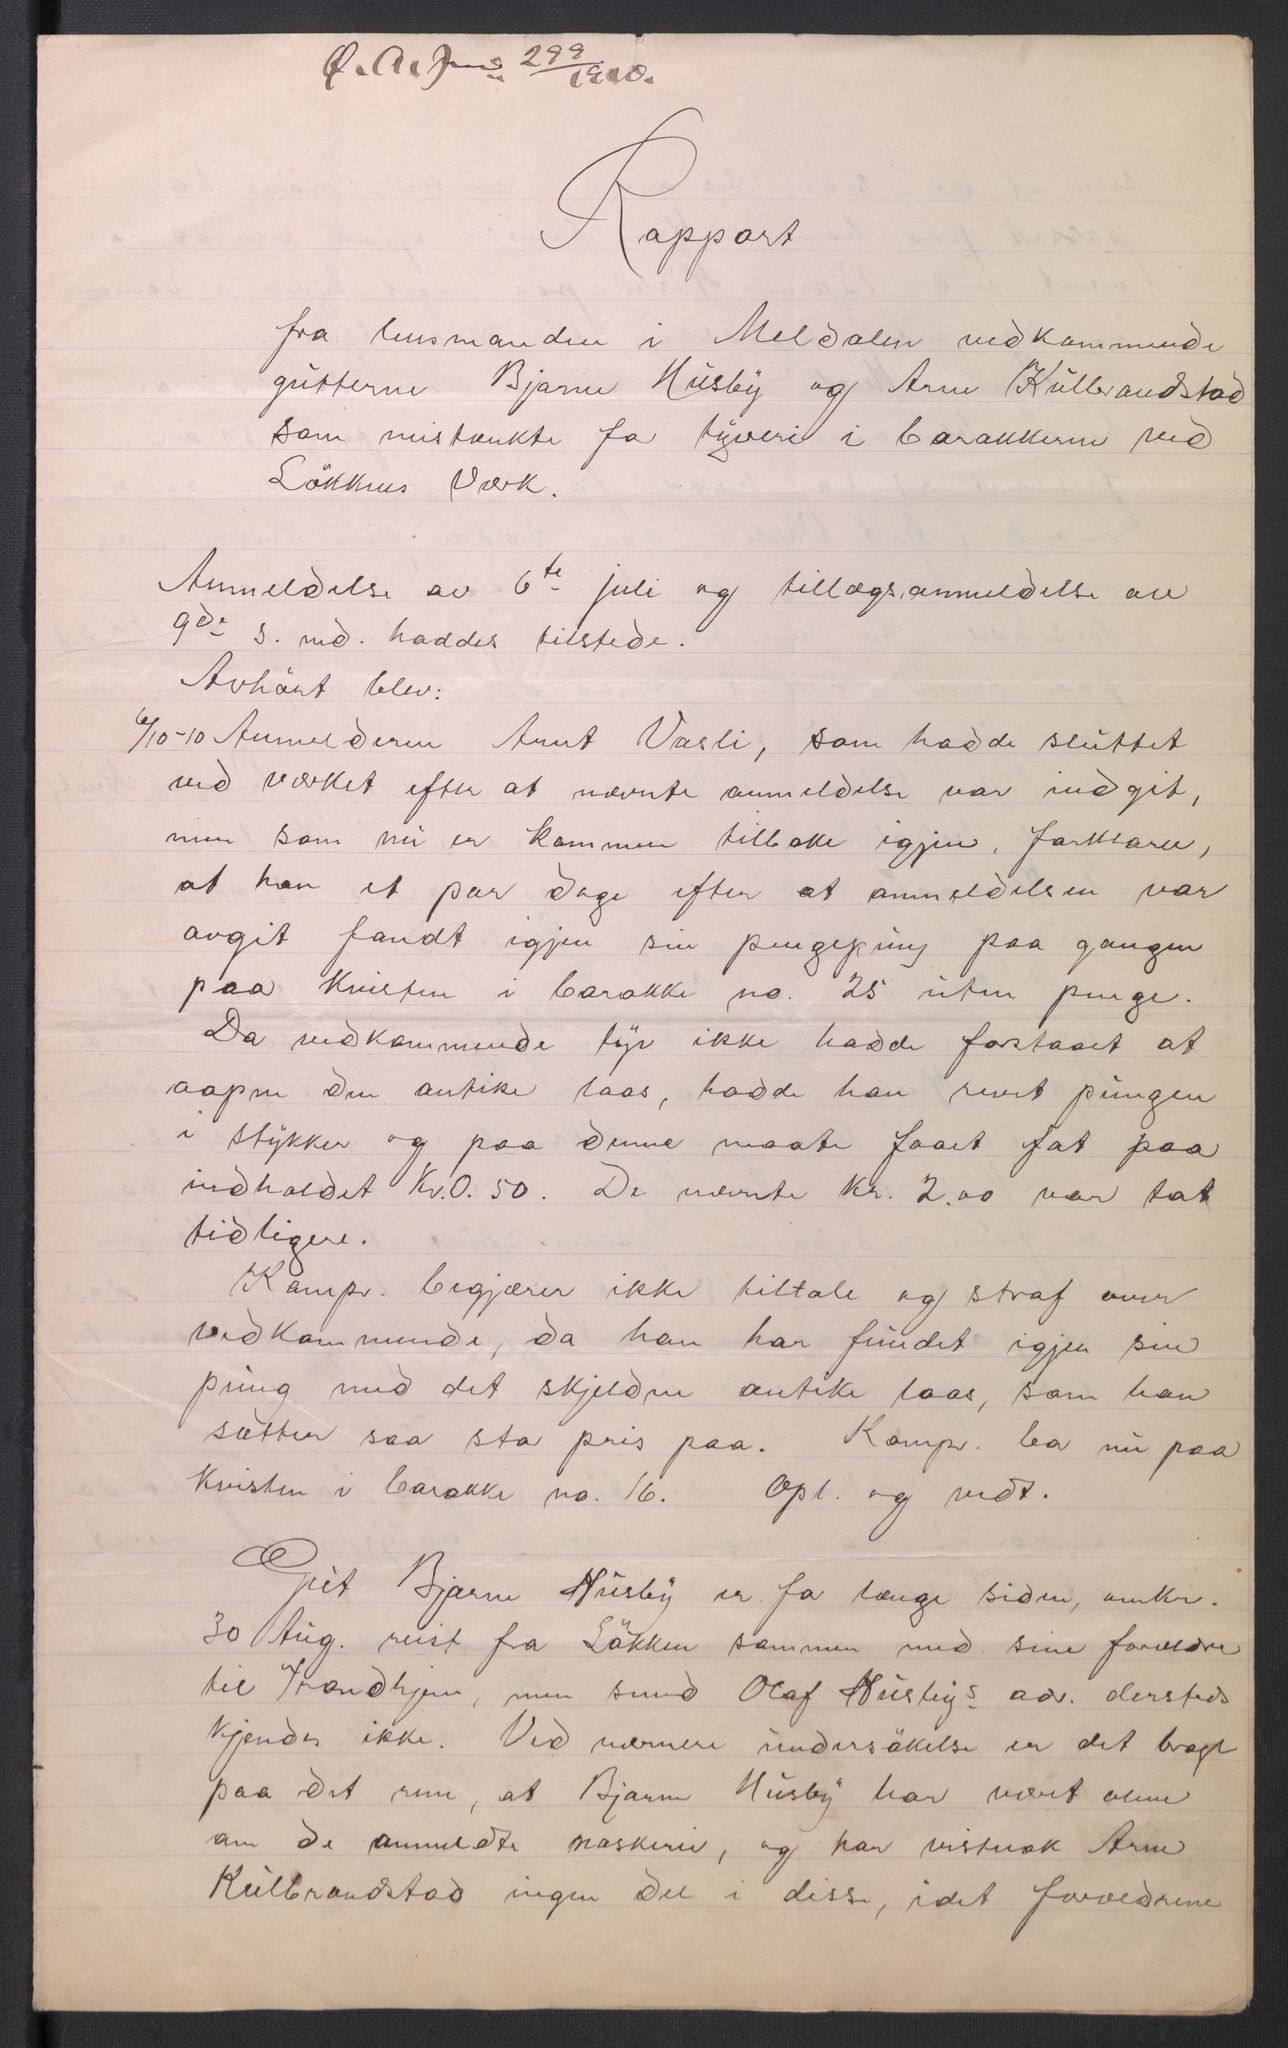 299/1910.
Rapport
fra lensmanden i Meldalen vedkommende
gutterne Bjarne Husby og Arne Kulbrandstad
som mistænkte for tyveri i barakkerne ved
Løkkens Værk.
Anmeldelse av 6te juli og tillægsanmeldelse av
9de s. md. haddes tilstede.
Avhørt blev:
6/10-10 Anmelderen Arnt Vasli, som hadde sluttet
ved værket efter at nævnte anmeldelse var indgit,
men som nu er kommen tilbake igjen, forklarer,
at han et par dage efter at anmeldelsen var
avgit fandt igjen sin pengepung paa gangen
paa kvisten i barakke no. 25 uten penge.
Da vedkommende tyv ikke hadde forstaaet at
aapne den antike laas, hadde han revet pungen
i stykker og paa denne maate faaet fat paa
indholdet Kr. 0.50. De nævnte Kr. 2.00 var tat
tidligere.
Kompr. begjærer ikke tiltale og straf over
vedkommende, da han har fundet igjen sin
pung med det skjeldne antike laas, som han
sætter saa stor pris paa. Kompr. bor nu paa
kvisten i barakke no. 16. Opl. og vedt.
Gut Bjarne Husby er for længe siden, omkr.
30 Aug. reist fra Løkken sammen med sine forældre
til Trondhjem, men smed Olaf Husbys adr. dersteds
kjendes ikke. Ved nærmere undersøkelse er det bragt
paa det rene, at Bjarne Husby har været alene
om de anmeldte naskerier, og har vistnok Arne
Kulbrandstad ingen del i disse, idet forældrene